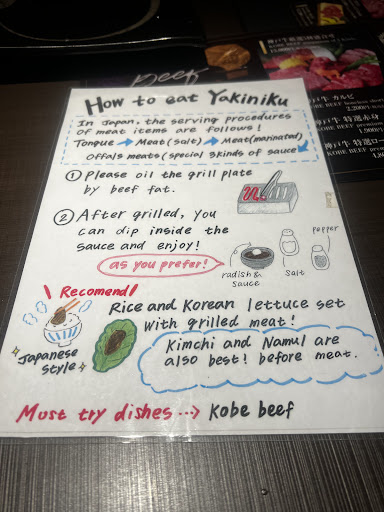 Beef
神戸牛 カルビ
KOBE BEEF
神戸牛 特選赤身
KOBE BEEF premium
神戸牛 特選ロー
KOBE BEEF premium
How to eat Yakiniku
In Japan, the serving procedures
of meat items are follows!
Tongue → Meat (salt) → Meat (marinated)
Offals meats (special 3kinds of sauce
① Please oil the grill plate
by beef fat.
② After grilled, you
can dip inside the
sauce and enjoy!
as you prefer!
radish &
sauce
Salt
pepper
\ Recomend /
Rice and Korean lettuce set
with grilled meat!
Japanese
style
Kimchi and Namul are
also best! before meat.
Must try dishes ···> Kobe beef